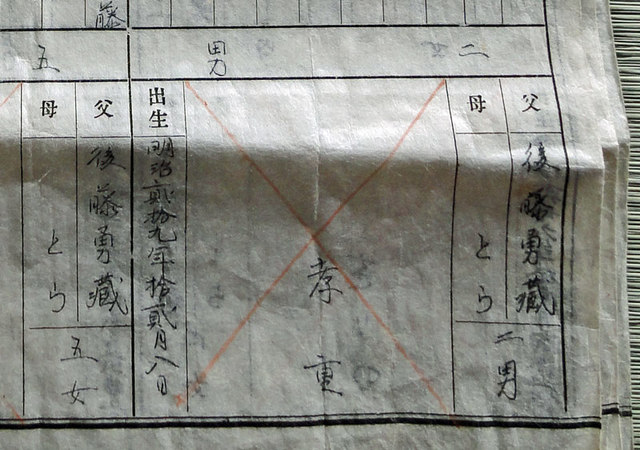 二
男
父
後藤勇藏
母
とら
二男
孝重
出生
明治貳拾九年拾貳月八日
藤
五
父
後藤勇藏
母
とら
五女